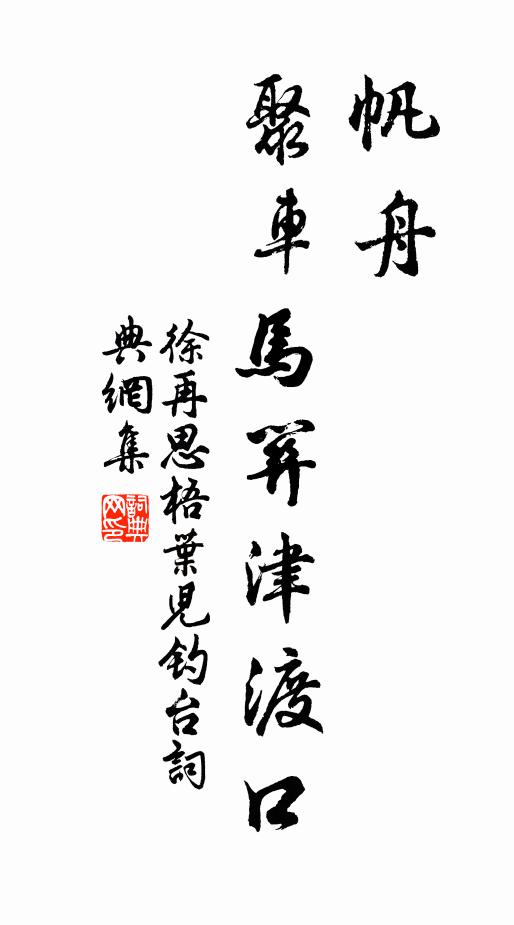 帆舟
聚車馬關津渡口
徐再思梧葉兒釣台詞
典網集
詞典
网印